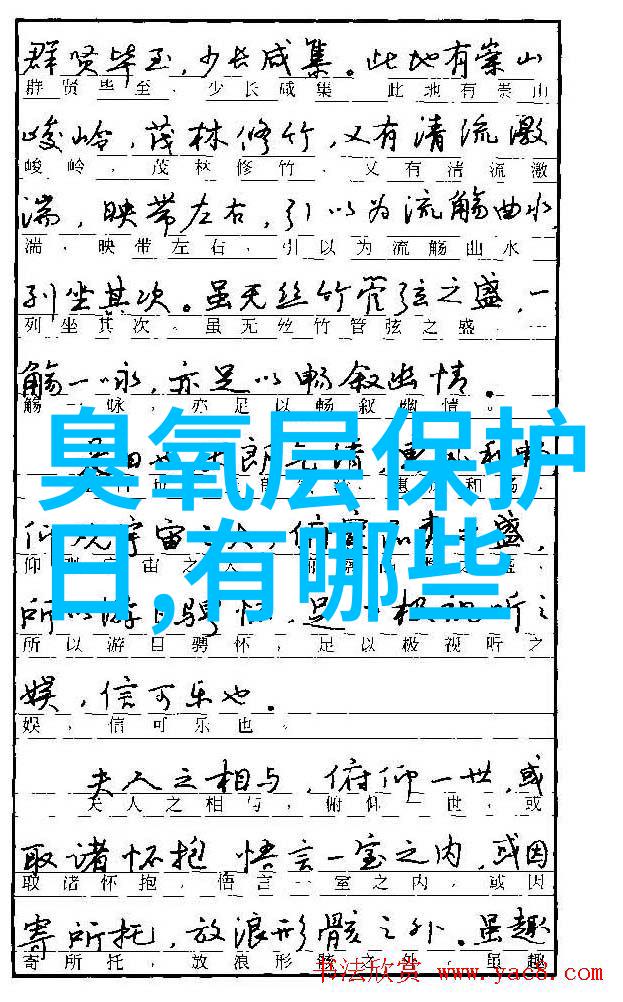 群贤毕至,少长咸集。此地有崇山
群贤毕至,少长咸集 此地有崇山
峻岭,茂林修竹,又有清流激
峻岭,茂林修竹,又有清流激
湍,映带左右,引以为流觞曲水,
湍,映带左右,引以为流觞曲水
列坐其次。虽无丝竹管弦之盛,一
列坐其次。虽无丝竹管弦之盛 一
觞一咏,亦足以畅叙幽情。
觞一咏,亦足以畅叙幽情。
臭氧层保护
日,有哪些
所以游目骋怀,足以极视听之
娱,信可乐也。
娱,信可乐也。
夫人之相与,俯仰一世,或
夫人之相与,俯仰一世,或
取诸怀抱 悟言一室之内,或因
取诸怀抱,悟言一室之内,或因
寄所托,放浪形骸之外。虽趣
寄所托,放浪形骸之外。虽趣
书法欣赏 www.yac8.com